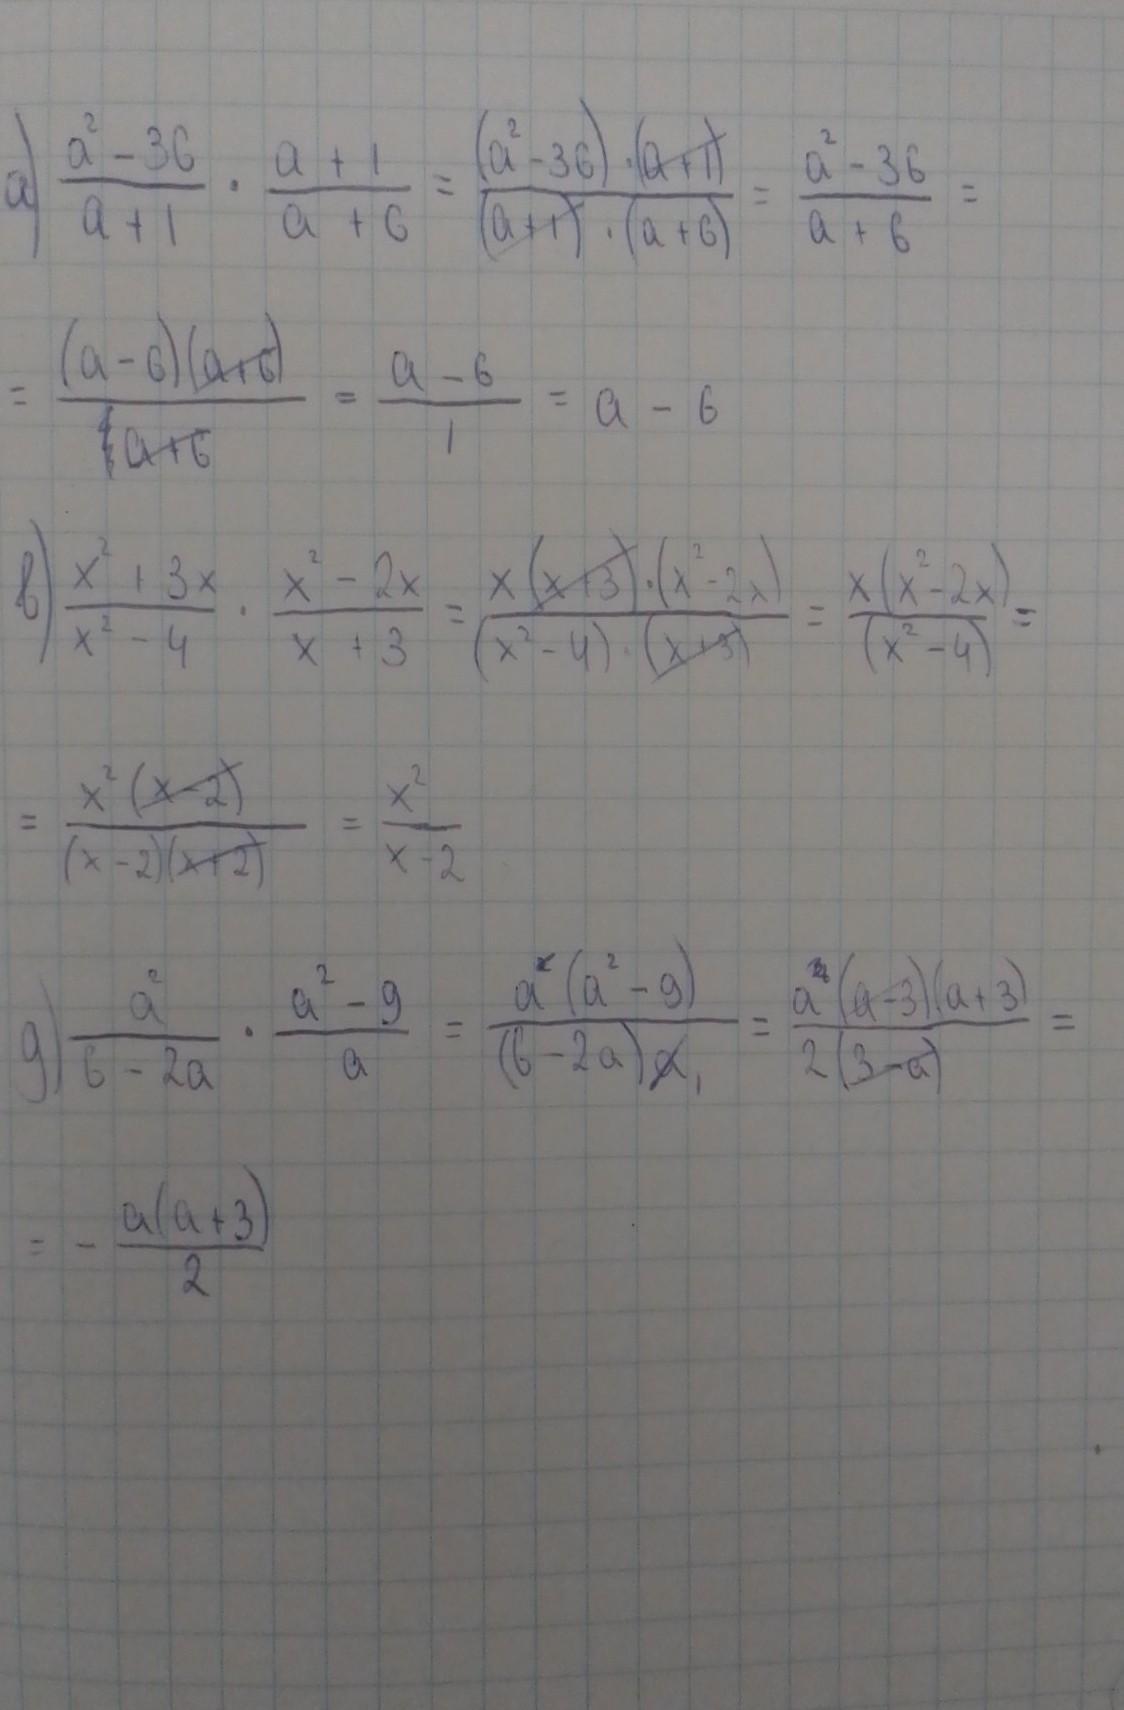 а) (a² - 36)/(a + 1) · (a + 1)/(a + 6) = ((a² - 36) · (a + 1))/((a + 1) · (a + 6)) = (a² - 36)/(a + 6) =
= ((a - 6)(a + 6))/(a + 6) = (a - 6)/1 = a - 6
в) (x² + 3x)/(x² - 4) · (x² - 2x)/(x + 3) = (x(x + 3) · (x² - 2x))/((x² - 4) · (x + 3)) = (x(x² - 2x))/((x² - 4)) =
= (x²(x - 2))/((x - 2)(x + 2)) = x²/(x - 2)
д) a²/(6 - 2a) · (a² - 9)/a = (a²(a² - 9))/((6 - 2a)a₁) = (a(a - 3)(a + 3))/(2(3 - a)) =
= - (a(a + 3))/2